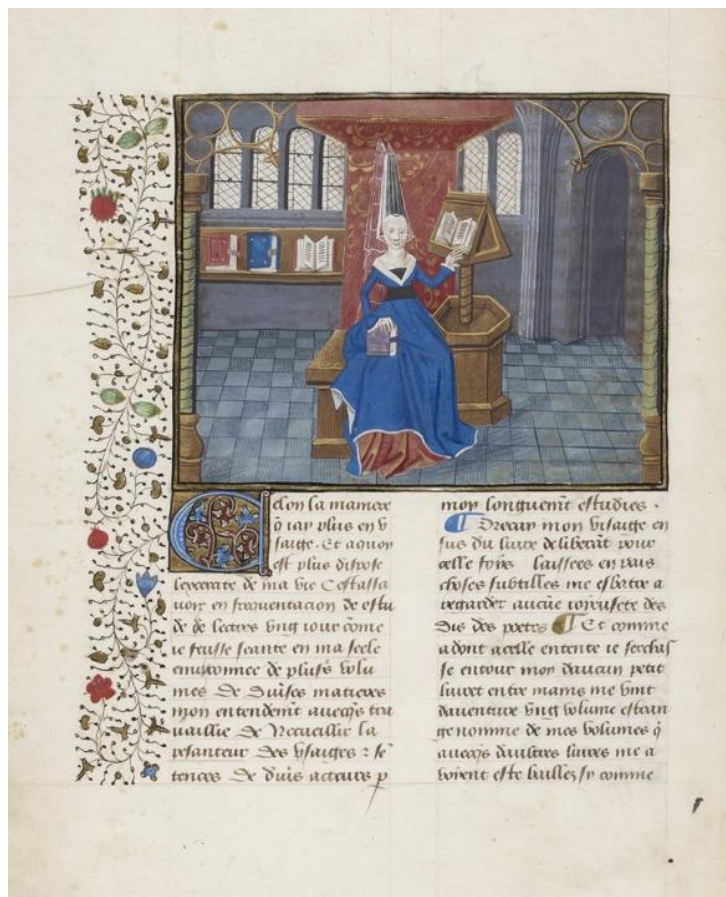 Selon la maniere
q̄ iay plus en v
saige. Et a quoy
est plus dispose
lexcercite de ma vie Cestassa
uoir en frequentacion de estu
de de lectres vng iour cōme
ie feusse seante en ma seele
enuironnee de plus̄s volu
mes de diũses matieres
mon entendem̄t auecq̄s tra
uaillie de Recueillir la
pesanteur des vsaiges ⁊ sē
tences de diũs acteurs p
mon longuem̄t estudies.
¶ Dreçay mon visaige en
sus du liure deliberāt pour
celle foys laissees en pais
choses subtilles me esbatre a
regarder aucūe ioyeusete des
dis des poetes ¶ Et comme
adont a celle entente ie serchas
se entour moy daucun petit
liuret entre mains me vint
dauenture vng volume estran
ge nomme de mes volumes q̄
auecq̄s daultres liures me a
voient este bailles sy comme